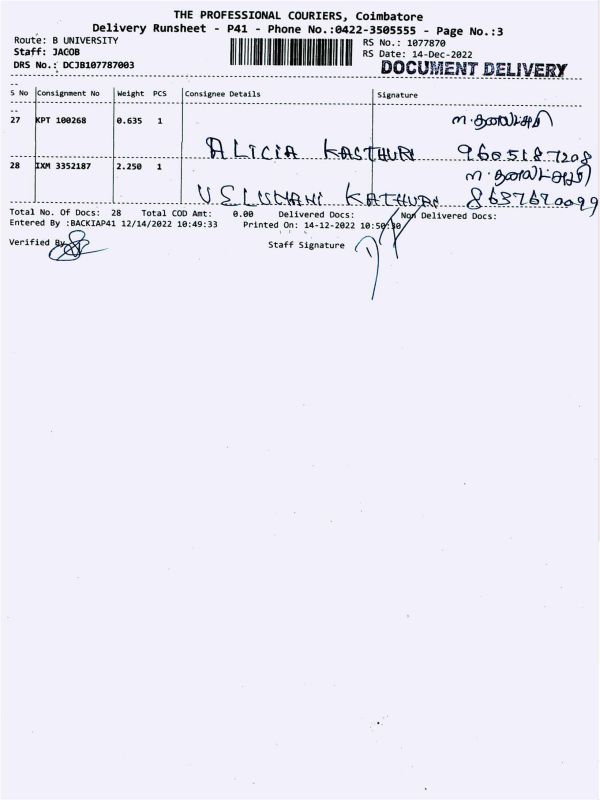 THE PROFESSIONAL COURIERS, Coimbatore
Delivery Runsheet - P41 - Phone No.:0422-3505555 - Page No.:3
Route: B UNIVERSITY
RS No.: 1077870
Staff: JACOB
RS Date: 14-Dec-2022
DRS No.: DCJB107787003
DOCUMENT DELIVERY
--
S No Consignment No Weight PCS Consignee Details Signature
--
27 KPT 100268 0.635 1
ALICIA KASTHURI 9605187208
28 IXM 3352187 2.250 1
VELUMANI KATHURI 8637670099
Total No. Of Docs: 28 Total COD Amt: 0.00 Delivered Docs: Non Delivered Docs:
Entered By :BACKIAP41 12/14/2022 10:49:33 Printed On: 14-12-2022 10:50:30
Verified By
Staff Signature